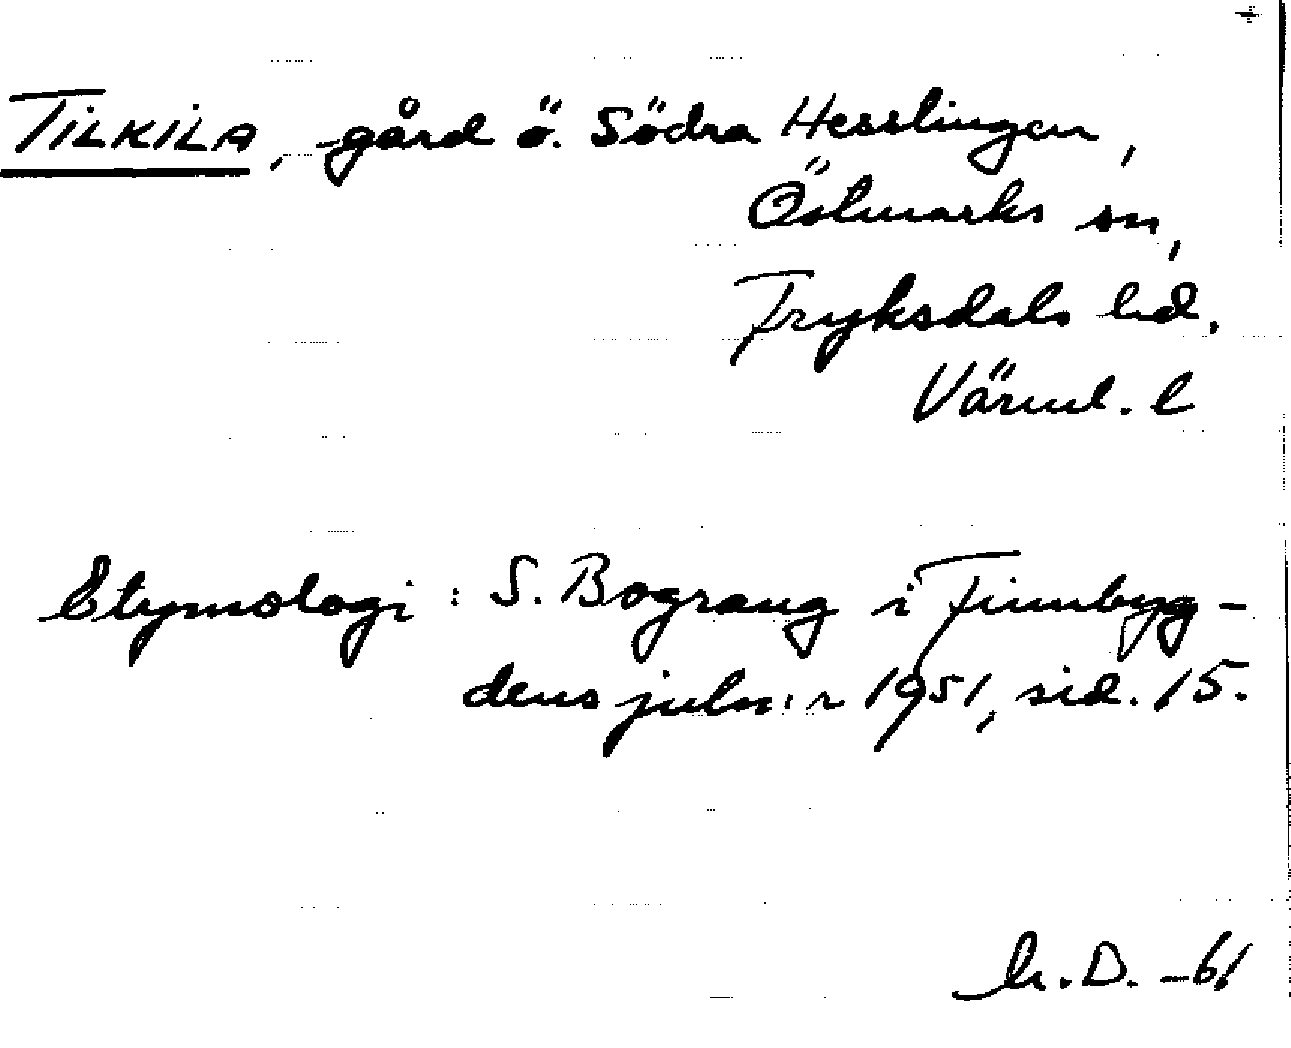 TILKILA, gård ö. Södra Hesslingen,
Östmarks sn,
Fryksdals hd.
Värml. l
Etymologi: S. Bograng i Finnbyg-
dens juln:r 1951, sid. 15.
D. -61